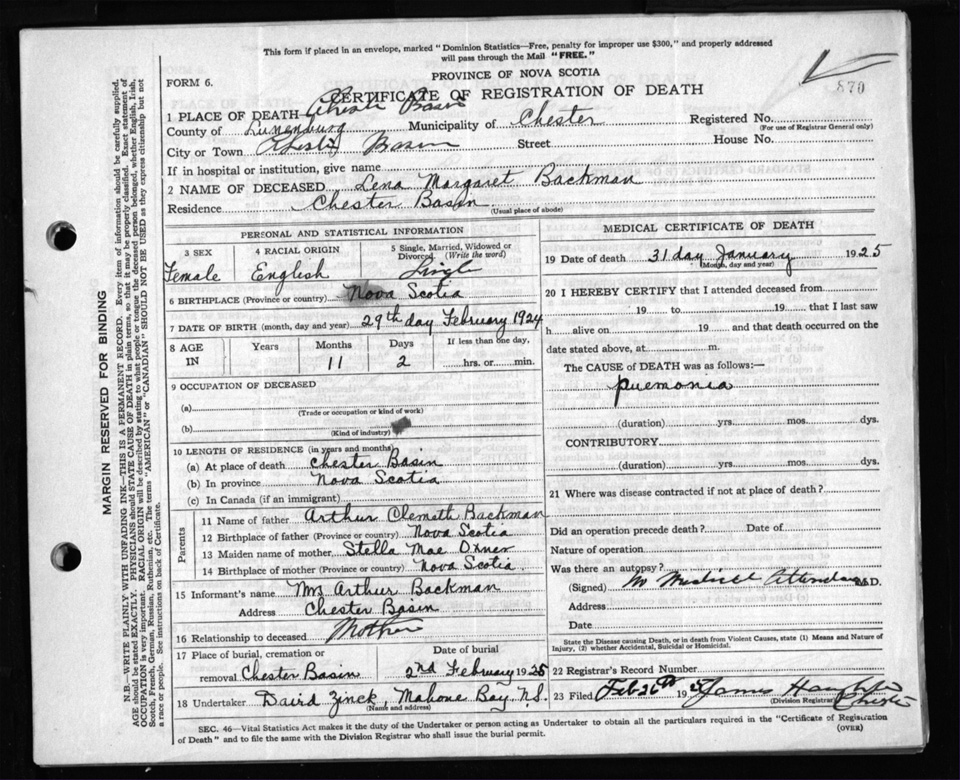 This form if placed in an envelope, marked "Dominion Statistics—Free, penalty for improper use $300," and properly addressed
will pass through the Mail "FREE."
PROVINCE OF NOVA SCOTIA
870
FORM 6.
CERTIFICATE OF REGISTRATION OF DEATH
1 PLACE OF DEATH Chester Basin
County of Lunenburg Municipality of Chester Registered No.
(For use of Registrar General only)
City or Town Chester Basin Street House No.
If in hospital or institution, give name
2 NAME OF DECEASED Lena Margaret Backman
Residence Chester Basin
(Usual place of abode)
PERSONAL AND STATISTICAL INFORMATION
3 SEX 4 RACIAL ORIGIN 5 Single, Married, Widowed or Divorced (Write the word)
Female English Single
6 BIRTHPLACE (Province or country) Nova Scotia
7 DATE OF BIRTH (month, day and year) 29th day February 1924
8 AGE IN Years Months Days If less than one day,
11 2 hrs. or min.
9 OCCUPATION OF DECEASED
(a)
(Trade or occupation or kind of work)
(b)
(Kind of industry)
10 LENGTH OF RESIDENCE (in years and months)
(a) At place of death Chester Basin
(b) In province Nova Scotia
(c) In Canada (if an immigrant)
Parents
11 Name of father Arthur Clemath Backman
12 Birthplace of father (Province or country) Nova Scotia
13 Maiden name of mother Stella Mae Oxner
14 Birthplace of mother (Province or country) Nova Scotia.
15 Informant's name Mrs Arthur Backman
Address Chester Basin
16 Relationship to deceased Mother
17 Place of burial, cremation or removal Chester Basin Date of burial 2nd February 1925
18 Undertaker David Zinck, Mahone Bay, N.S.
(Name and address)
MEDICAL CERTIFICATE OF DEATH
19 Date of death 31 day January 1925
(Month, day and year)
20 I HEREBY CERTIFY that I attended deceased from
19 to 19 that I last saw
h alive on 19 and that death occurred on the
date stated above, at m.
The CAUSE of DEATH was as follows:—
Puemonia
(duration) yrs. mos. dys.
CONTRIBUTORY
(duration) yrs. mos. dys.
21 Where was disease contracted if not at place of death?
Did an operation precede death? Date of
Nature of operation
Was there an autopsy?
(Signed) No Medical Attendance M.D.
Address
Date
State the Disease causing Death, or in death from Violent Causes, state (1) Means and Nature of
Injury, (2) whether Accidental, Suicidal or Homicidal.
22 Registrar's Record Number
23 Filed Feb 26th 19 James
(Division Registrar) Chester
SEC. 46—Vital Statistics Act makes it the duty of the Undertaker or person acting as Undertaker to obtain all the particulars required in the "Certificate of Registration
of Death" and to file the same with the Division Registrar who shall issue the burial permit.
(OVER)
MARGIN RESERVED FOR BINDING
N.B.—WRITE PLAINLY WITH UNFADING INK—THIS IS A PERMANENT RECORD. Every item of information should be carefully supplied.
AGE should be stated EXACTLY. PHYSICIANS should STATE CAUSE OF DEATH in plain terms, so that it may be properly classified. Exact statement of
OCCUPATION is very important. RACIAL ORIGIN will be described by stating to what people or tongue the deceased person belonged, whether English, Irish,
Scotch, French, German, Russian, Ruthenian, etc. The terms "AMERICAN" or "CANADIAN" SHOULD NOT BE USED as they express citizenship but not
a race or people. See instructions on back of Certificate.